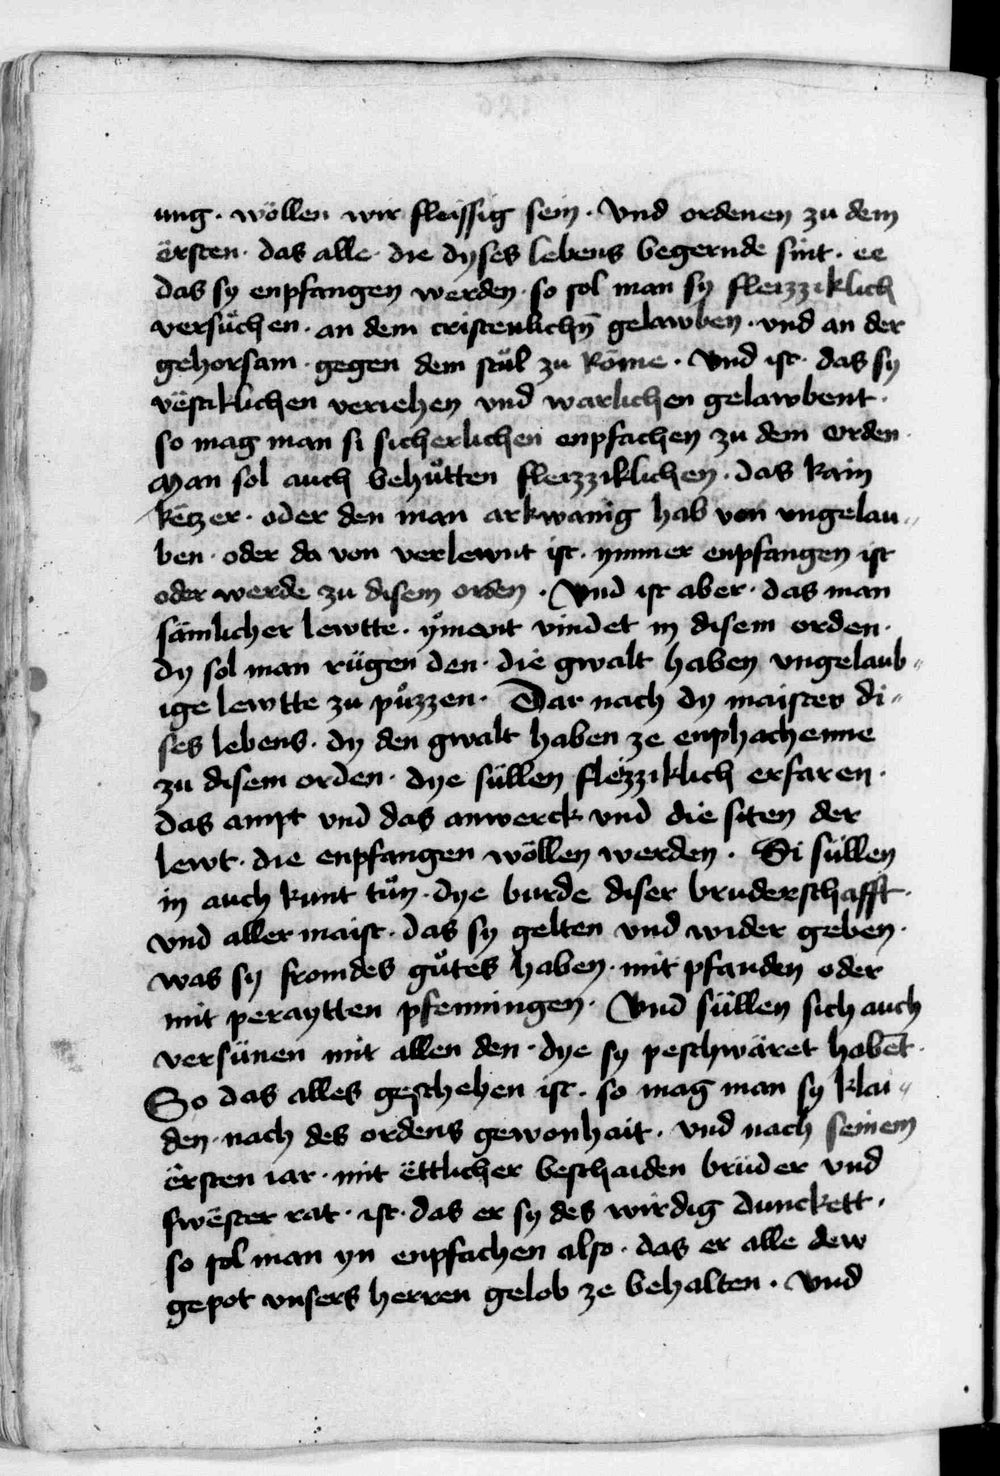 ung · wöllen wir fleissig sein · Vnd ordenen zu dem
ërsten · das alle · die dyses lebens begernde sint · ee
das sy enpfangen werden · so sol man sy fleizziklich
versüchen · an dem cristenlichn̄ gelawben · vnd an der
gehorsam · gegen dem stůl zu Röme · Vnd ist · das sy
vëstiklichen veriehen vnd warlichen gelawbent ·
so mag man si sicherlichen enpfachen zu dem Orden ·
Man sol auch behůtten fleizziklichen · das kain
ketzer · oder den man arkwanig hab von vngelau〃
ben · oder da von verlewnt ist · ymmer enpfangen ist
oder werde zu disem orden · Vnd ist aber · das man
sämlicher lewtte · ÿment vindet in disem orden ·
dy sol man rügen den · die gwalt haben vngelaub〃
ige lewtte zu půzzen · Dar nach dy maister di〃
ses lebens · dy den gwalt haben ze enphachenne
zu disem orden · dye süllen flëzziklich erfaren ·
das ampt vnd das anwerck vnd die siten der
lewt · die enpfangen wöllen werden · Si süllen
in auch kunt tůn · dye burde diser bruderschafft ·
vnd aller maist · das sy gelten vnd wider geben ·
was sy fromdes gůtes haben · mit pfanden oder
mit peraytten pfenningen · Vnd süllen sich auch
versünen mit allen den · dye sy peschwäret habēt ·
So das alles geschehen ist · so mag man sy klai〃
den · nach des ordens gewonhait · vnd nach seinem
ërsten iar · mit ëttlicher beschaiden brüder vnd
swëster rat · ist · das er sy des wirdig dunckett ·
so sol man yn enpfachen also · das er alle dew
gepot vnsers herren gelob ze behalten · Vnd